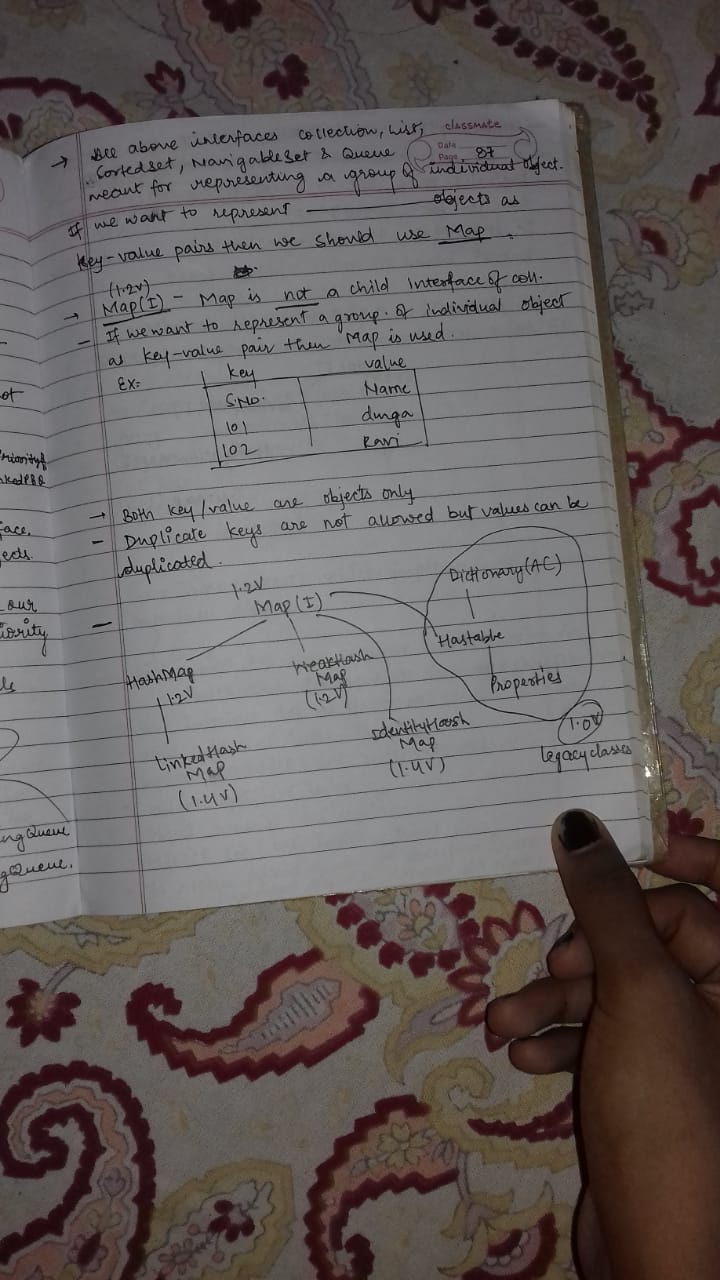 classmate
Date
Page 87
→ All above interfaces collection, List,
SortedSet, NavigableSet & Queue
meant for representing a group of individual object.
If we want to represent ———— objects as
key-value pairs then we should use Map.
(1.2V)
→ Map(I) - Map is not a child interface of coll.
- If we want to represent a group of individual object
as key-value pair then Map is used.
Ex:- Key value
S.No. Name
101 durga
102 Ravi
→ Both key/value are objects only
- Duplicate keys are not allowed but values can be
duplicated.
1.2V
- Map(I)
Dictionary(AC)
Hastable
Properties
1.0V
legacy classes
HashMap
1.2V
WeakHash
Map
(1.2V)
LinkedHash
Map
(1.4V)
IdentityHash
Map
(1.4V)
ot
face,
ects.
our
iority
ls
ngQueue
gQueue.